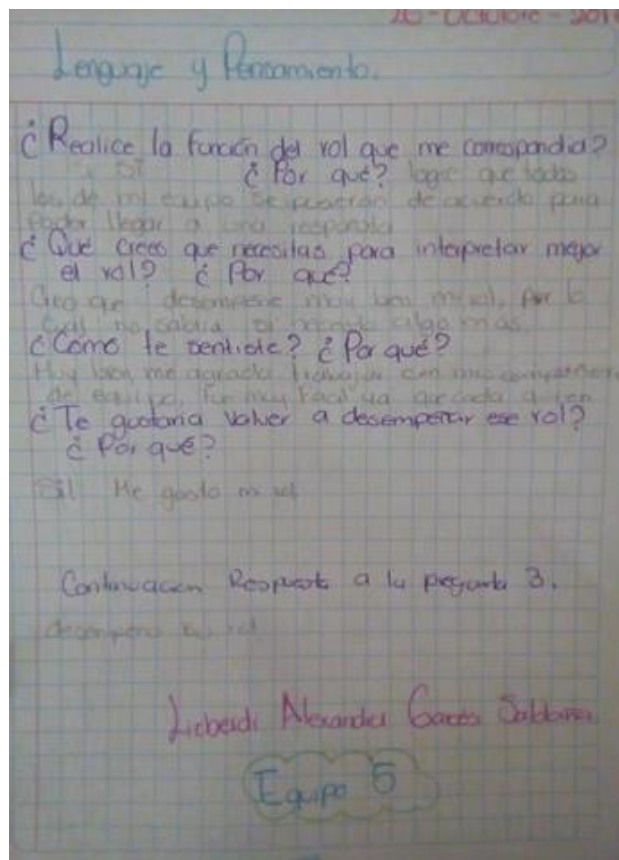 26-Octubre-201
Lenguaje y Pensamiento.
¿Realice la función del rol que me correspondia?
Si ¿Por qué? logre que todos
los de mi equipo se pusieran de acuerdo para
poder llegar a una respuesta
¿Qué crees que necesitas para interpretar mejor
el rol? ¿Por qué?
Creo que desempeñe muy bien mi rol, por lo
cual no sabria si necesito algo mas
¿Cómo te sentiste? ¿Por qué?
Muy bien, me agrada trabajar con mis compañeros
de equipo, fue muy facil ya que cada quien
¿Te gustaria volver a desempeñar ese rol?
¿Por qué?
Si! Me gusto mi rol
Continuacion Respuesta a la pregunta 3.
desempeño su rol
Alexander
Equipo 5